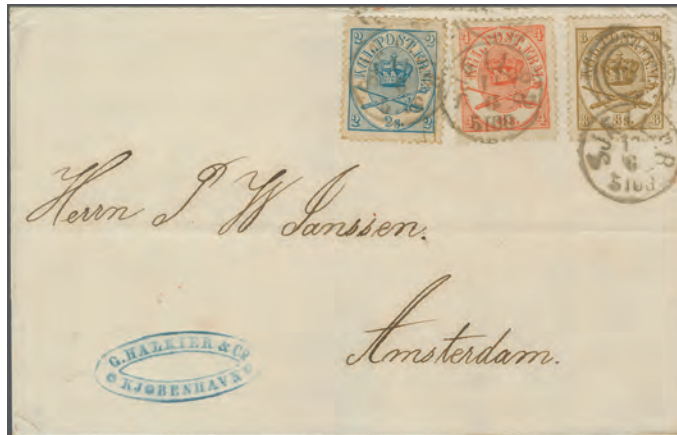 2 2
KGL.POST.FRM.
2s.
2 2
4 4
KGL.POST.FRM.
4 4
8 8
KGL.POST.FRM.
8s.
8 8
Herrn P W Janssen.
Amsterdam.
G. HALKIER & Co.
KJØBENHAVN